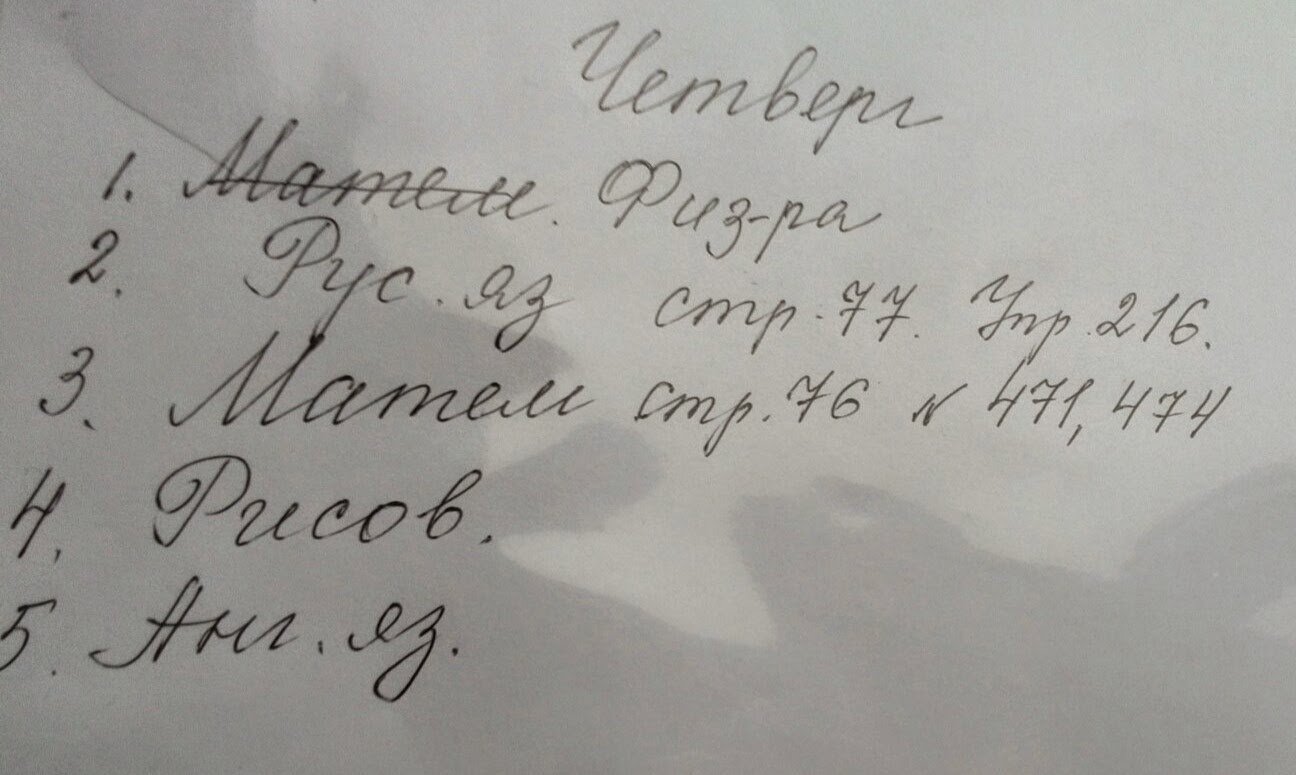 Четверг
1. Матем. Физ-ра
2. Рус. яз стр. 77. Упр. 216.
3. Матем стр. 76 № 471, 474
4. Рисов.
5. Анг. яз.